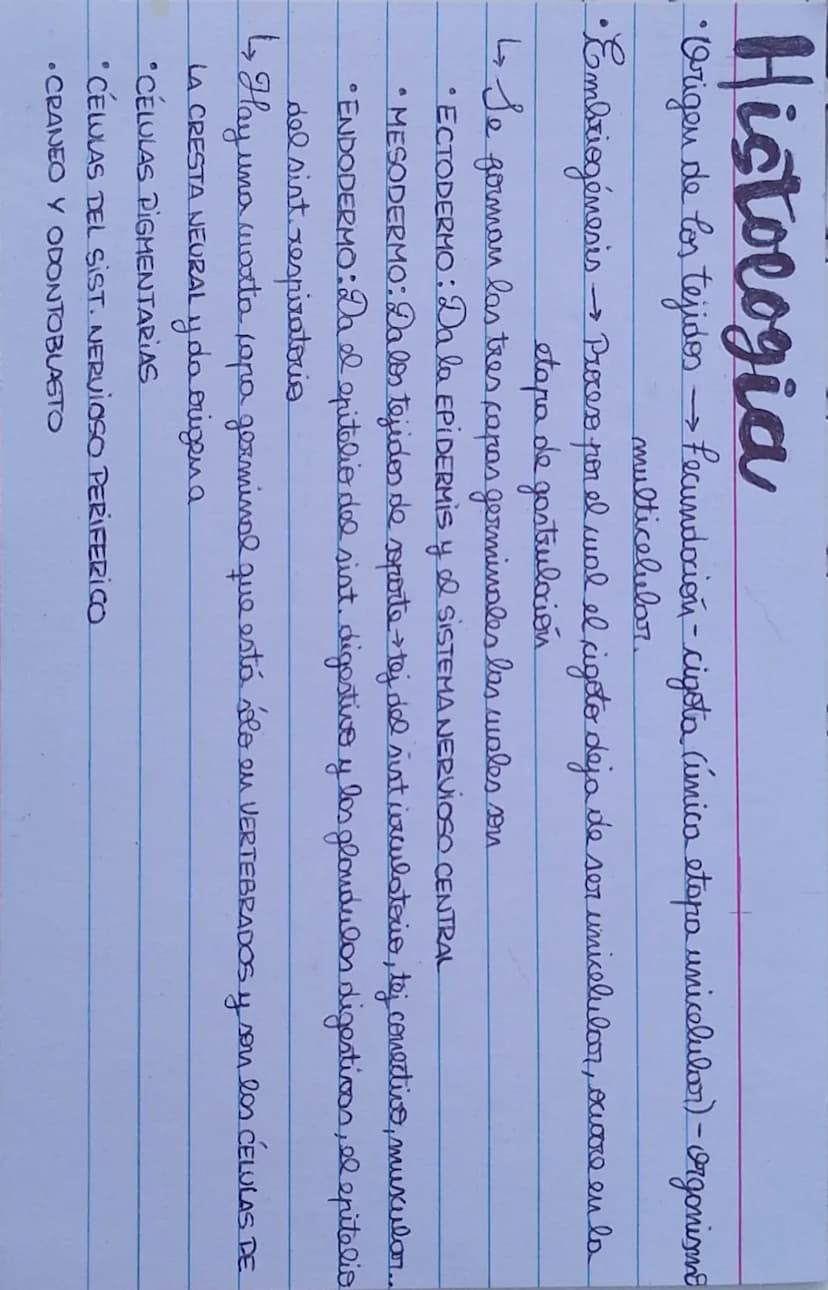 Histología
• Origen de los tejidos → fecundación - cigota (única etapa unicelular) - organismo
multicelular.
• Embriogénesis → Proceso por el cual el cigoto deja de ser unicelular, ocurre en la
etapa de gastrulación
↳ Se forman las tres capas germinales las cuales son
• ECTODERMO: Da la EPIDERMIS y el SISTEMA NERVIOSO CENTRAL
• MESODERMO: Da los tejidos de soporte → tej del sist circulatorio, tej conectivo, muscular..
• ENDODERMO: Da el epitelio del sist. digestivo y las glandulas digestivas, el epitelio
del sist respiratorio
↳ Hay una cuarta capa germinal que está sólo en VERTEBRADOS y son las CÉLULAS DE
LA CRESTA NEURAL y da origen a
• CÉLULAS PIGMENTARIAS
• CÉLULAS DEL SIST. NERVIOSO PERIFERICO
• CRANEO Y ODONTOBLASTO